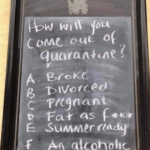 How will you
come out of
quarantine?
A. Broke
B Divorced
C Pregnant
D Fat as f***
E Summer ready
F An alcoholic